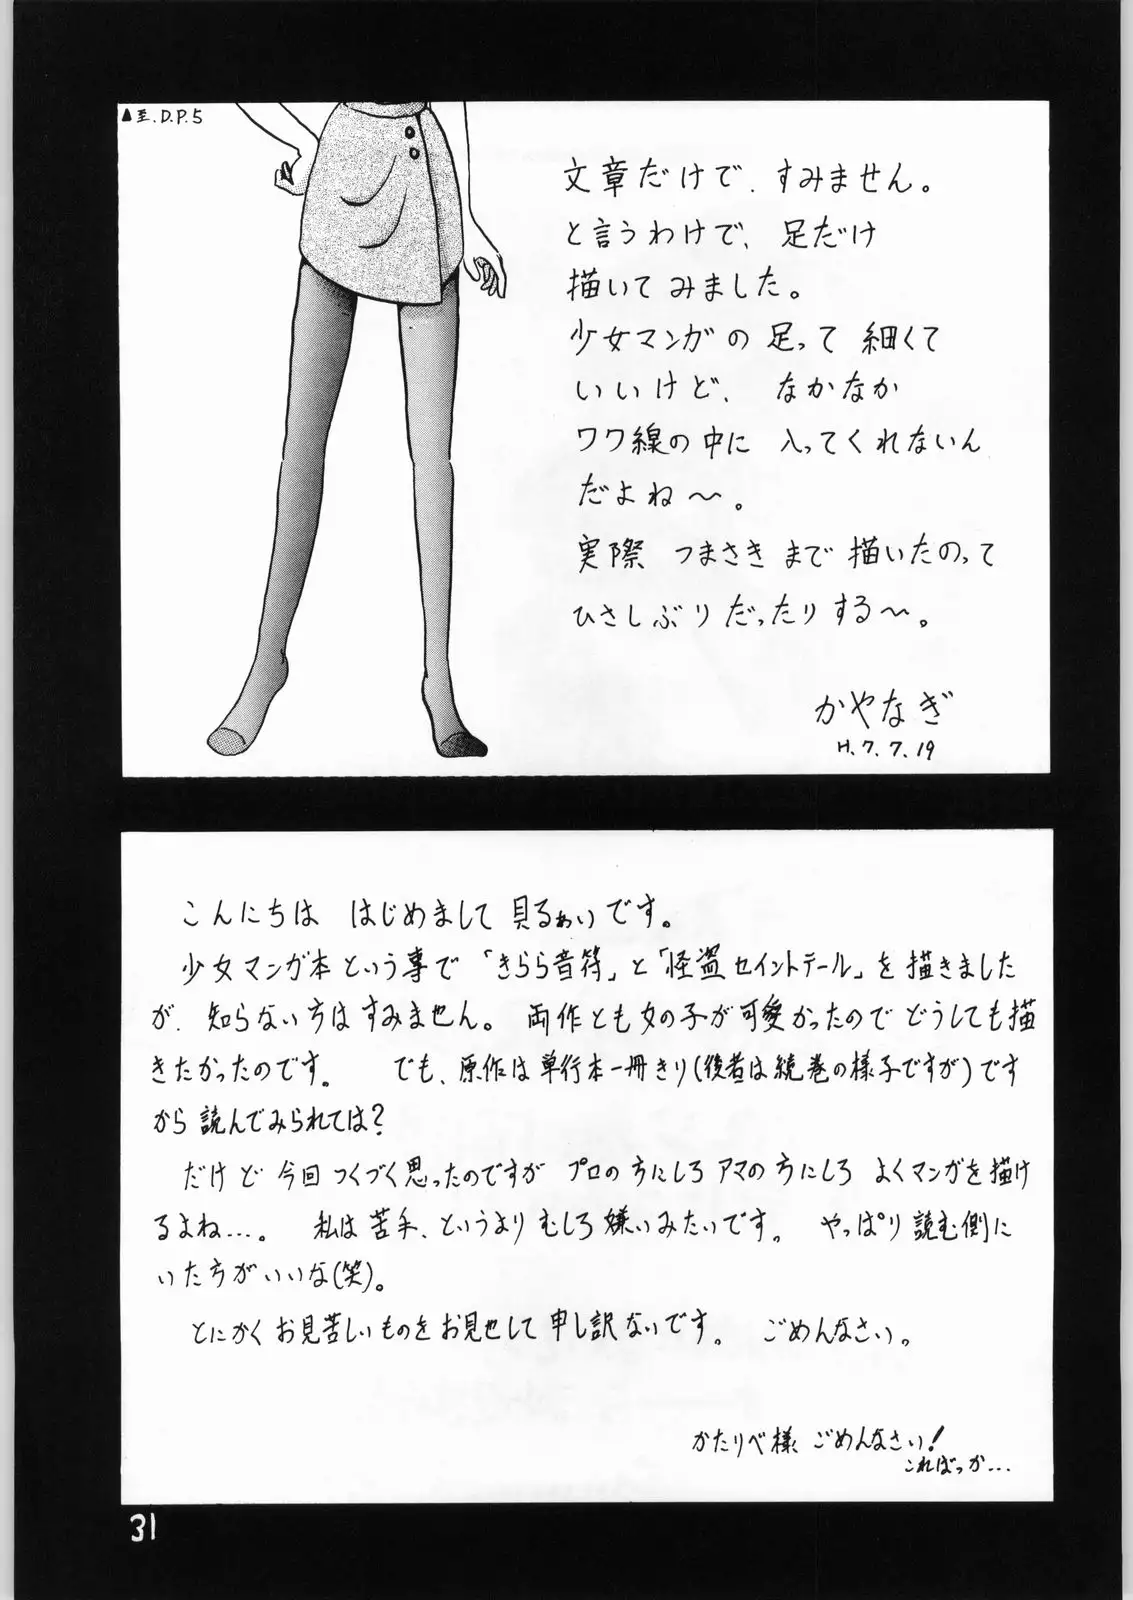 ▲至.D.P.5
文章だけで、すみません。
と言うわけで、足だけ
描いてみました。
少女マンガの足って細くて
いいけど、なかなか
ワク線の中に入ってくれないん
だよね〜。
実際つまさきまで描いたのって
ひさしぶりだったりする〜。
かやなぎ
H.7.7.19
こんにちは はじめまして 貝るぁぃです。
少女マンガ本という事で「きらら音符」と「怪盗セイントテール」を描きました
が、知らない方はすみません。両作とも女の子が可愛かったのでどうしても描
きたかったのです。 でも、原作は単行本一冊きり(後者は続巻の様子ですが)です
から読んでみられては?
だけど今回つくづく思ったのですが プロの方にしろアマの方にしろ よくマンガを描け
るよね…。 私は苦手、というよりむしろ嫌いみたいです。 やっぱり読む側に
いた方がいいな(笑)。
とにかくお見苦しいものをお見せして申し訳ないです。 ごめんなさい。
かたりべ様 ごめんなさい!
こればっか…
31